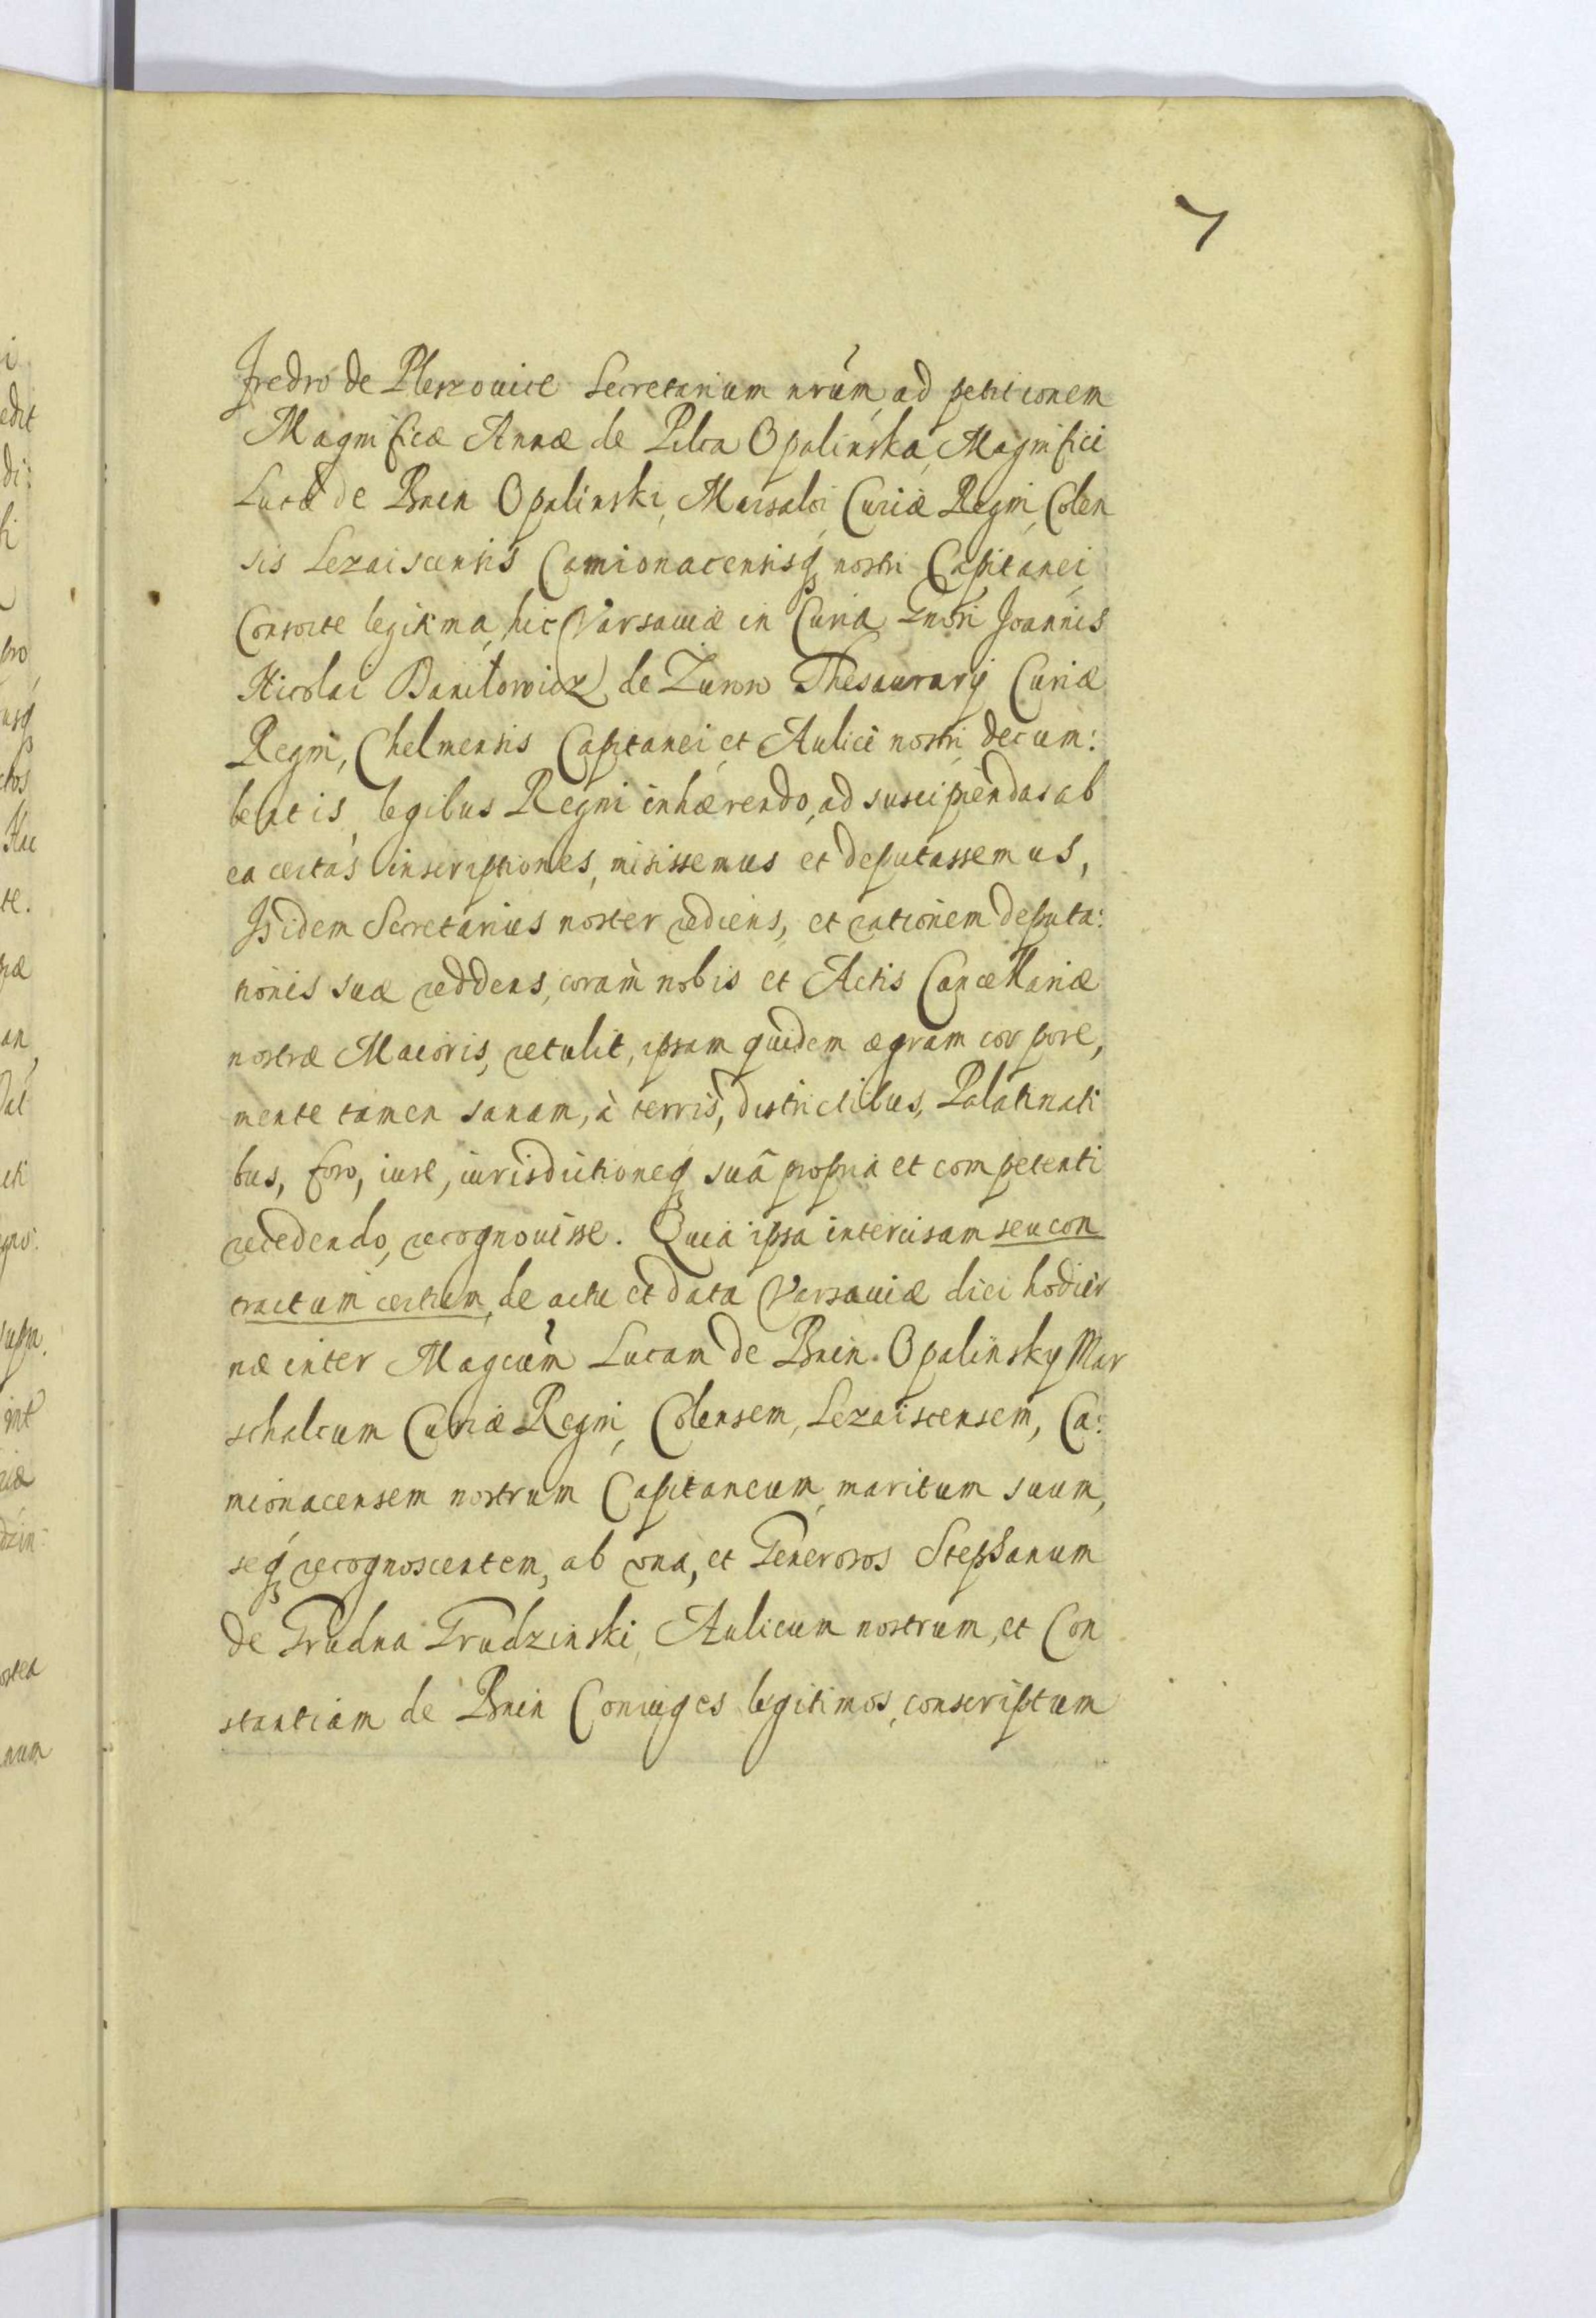 7
Fredro de Pleszouice Secretarium nrum, ad petitionem
Magnificæ Annæ de Pilca Opalinska, Magnifici
Lucæ de Bnin Opalinski, Marsalci Curiæ Regni, Colen
sis Lezaiscensis Camionacensisq nostri Capitanei,
Consorte legitima, hic Varsauiæ in Curia Gnosi Joannis
Nicolai Daniłowicz de Zurow Thesaurarij Curiæ
Regni, Chelmensis Capitanei, et Aulici nostri, decum:
bentis, legibus Regni inhærendo, ad suscipiendas ab
ea certas inscriptiones, misissemus et deputassemus,
Isidem Secretarius noster rediens, et rationem deputa:
tionis suæ reddens, coram nobis et Actis Cancellariæ
nostræ Maioris, retulit, ipsam quidem ægram corpore,
mente tamen sanam, à terris, districtibus, Palatinati
bus, foro, iure, iurisdictioneq suâ propria et competenti
recedendo, recognouisse. Quia ipsa intercisam seu con
tractum certum, de actu et data Varsauiæ diei hodier
næ inter Magcum Lucam de Bnin Opalinsky Mar
schalcum Curiæ Regni, Colensem, Lezaiscensem, Ca:
mionacensem nostrum Capitaneum, maritum suum,
seq recognoscentem, ab una, et Generosos Stephanum
de Grudna Grudzinski, Aulicum nostrum, et Con
stantiam de Bnin Coniuges legitimos, conscriptum